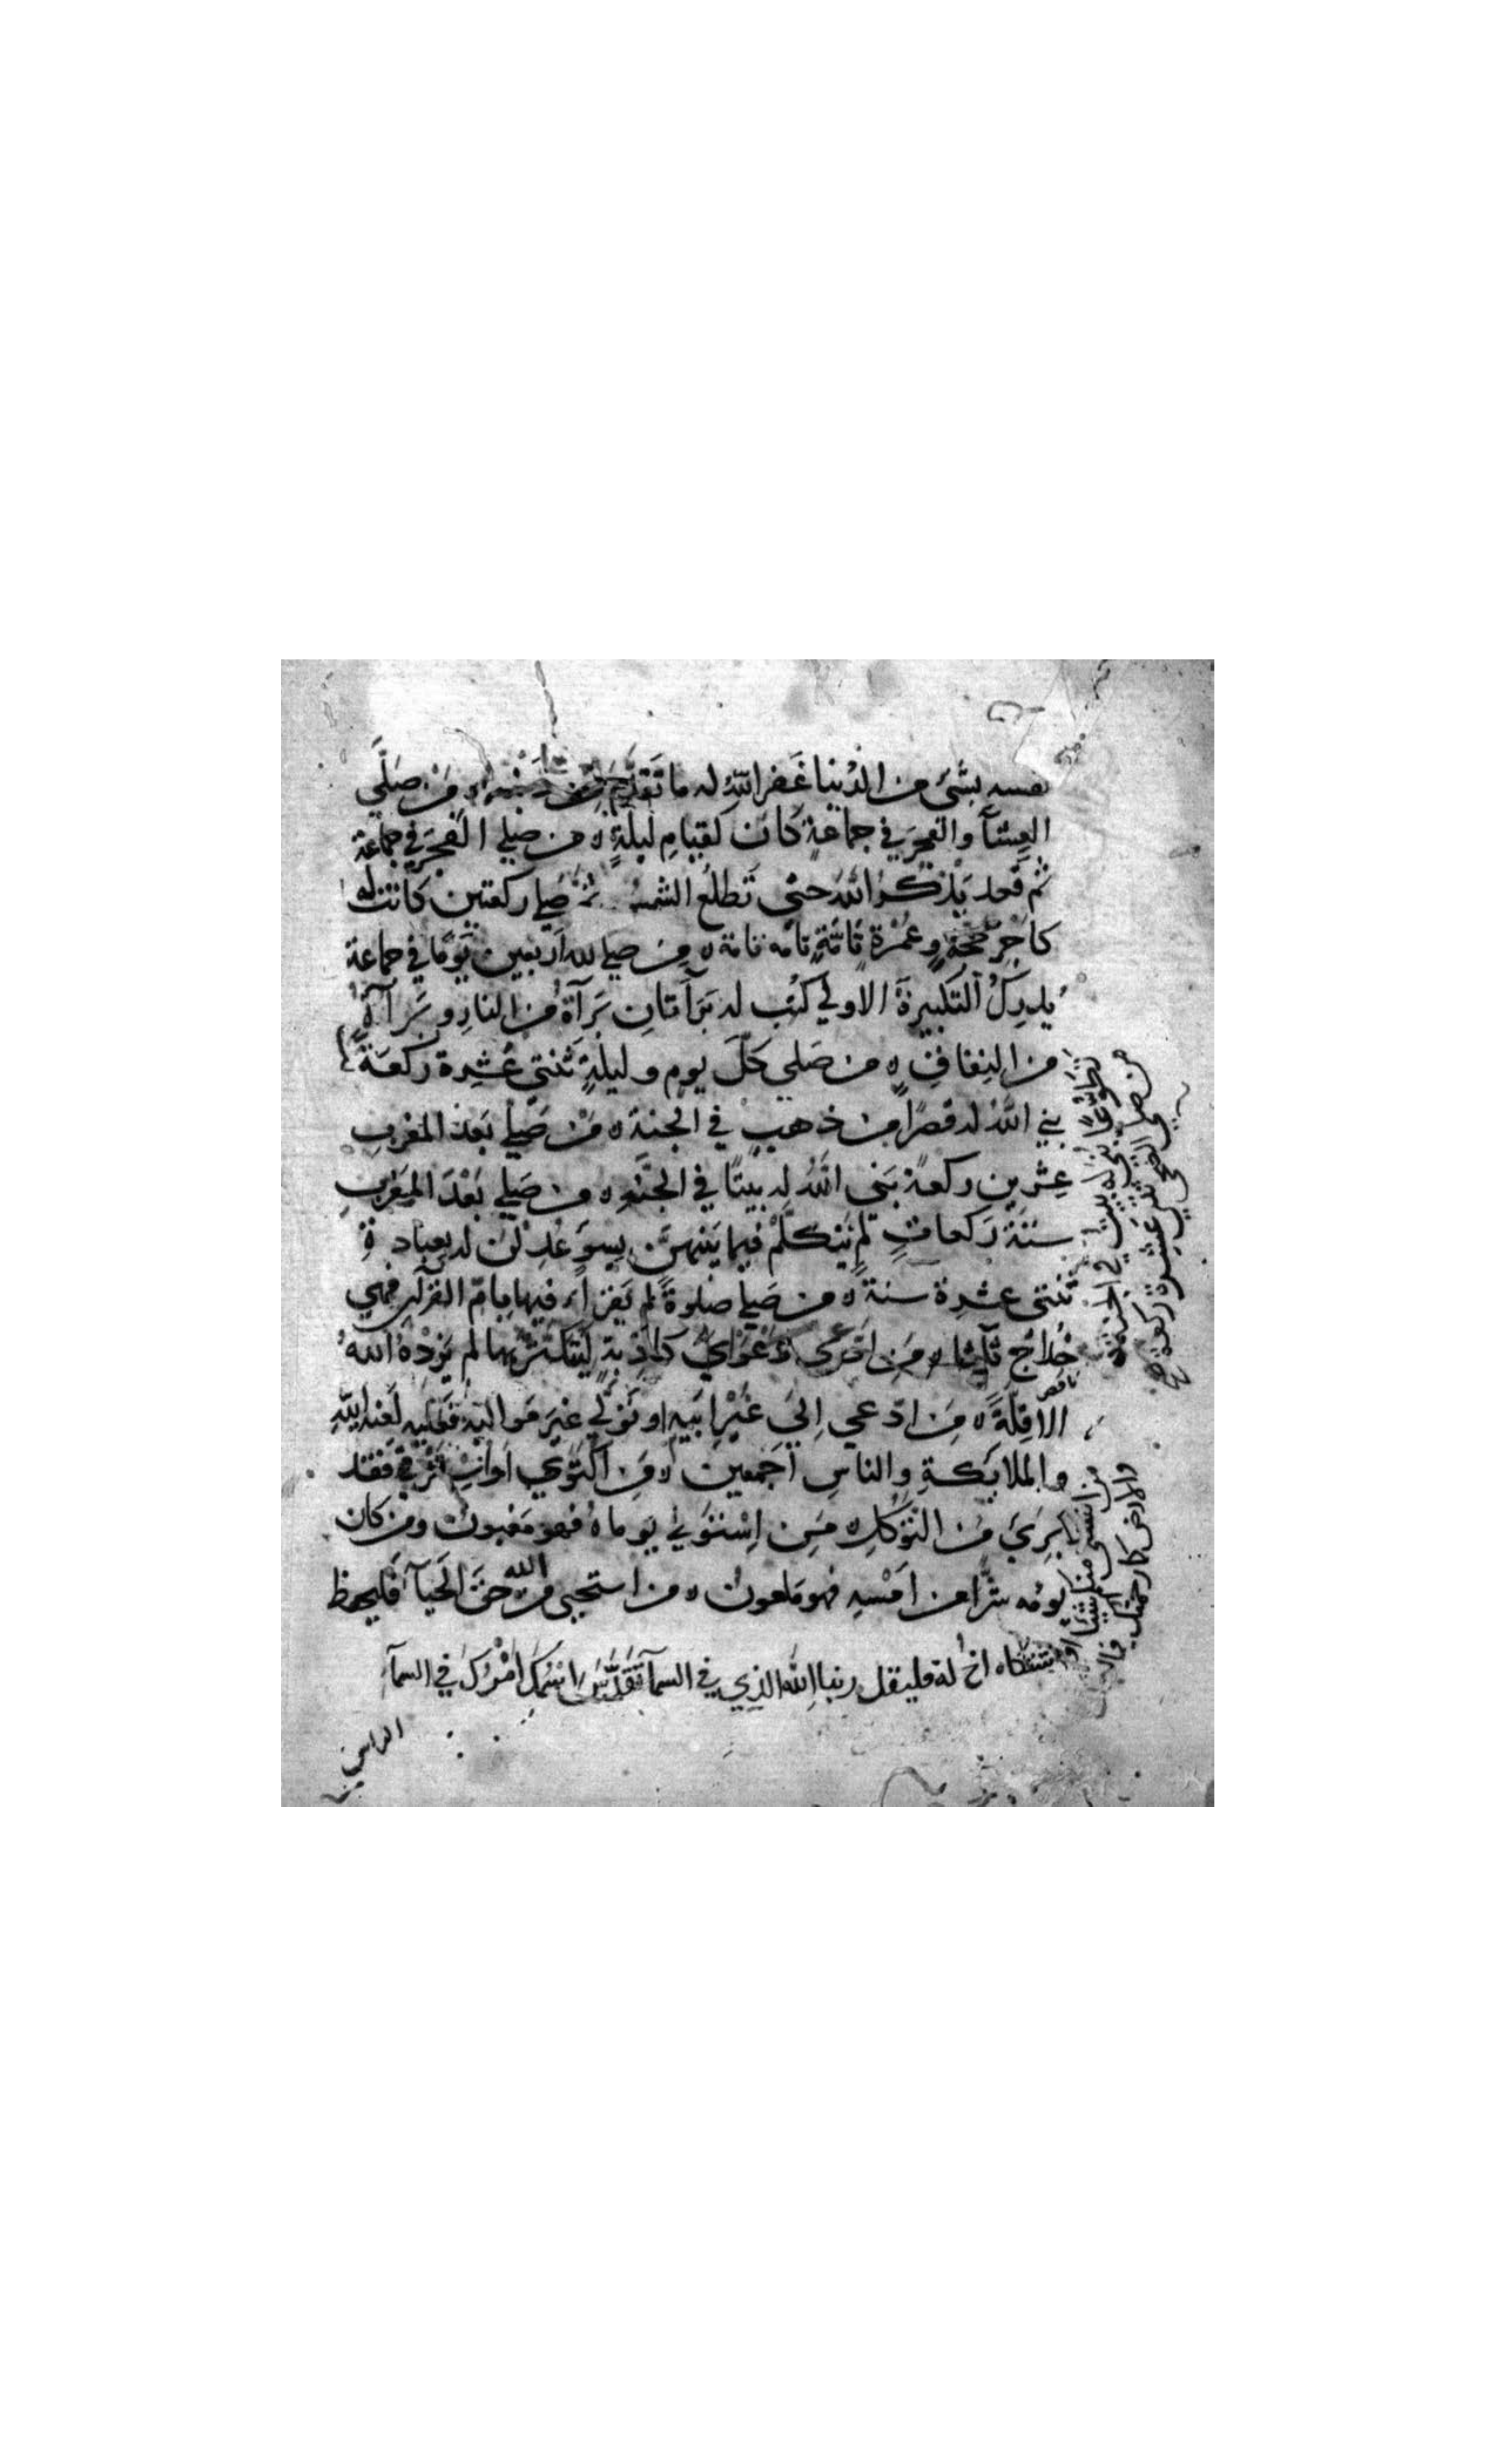 نفسه بشئ من الدنيا غفر الله له ما تقدم من ذنبه ه من صلى
العشآ والفجر في جماعة كان كقيام ليلة ه من صلي الفجر في جماعة
ثم قعد يذكر الله حتى تطلع الشمس ثم صلي ركعتين كانت له
كاجر حجة وعمرة تامة تامه تامة ه من صلي لله اربعين يوما في جماعة
يدرك التكبيرة الاولي كتب له برآتان برآة من النار وبرآة
من النفاق ه من صلي كل يوم وليلة ثنتي عشرة ركعة
بني الله له قصرا من ذهب في الجنة ه من صلي بعد المغرب
عشرين ركعة بنى الله له بيتا في الجنة ه من صلي بعد المغرب
ستة ركعات لم يتكلم فيما بينهن بسوء عدلن له بعبادة
ثنتى عشرة سنة ه من صلي صلوة لم يقرأ فيها بام القرآن فهي
خداج ثلثا ه من ادعى دعوي كاذبة ليتكثر بها لم يزده الله
ناقص
الا قلة ه من ادعي الي غير ابيه او تولي غير مواليه فعليه لعنة الله
والملايكة والناس اجمعين ه من اكتوي او استرقي فقد
بري من التوكل ه من استوي يوماه فهو مغبون ومن كان
يومه شرا من امسه فهو ملعون ه من استحيى من الله حق الحيآ فليحفظ
اشتكاه اخ له فليقل ربنا الله الذي في السمآ تقدس اسمك امرك في السمآ
الراس
من صلي الضحي ثنتي عشرة ركعة
بنى الله له بيتا في الجنة
من اشتكى منكم شيئا او
والارض كما رحمتك في السما